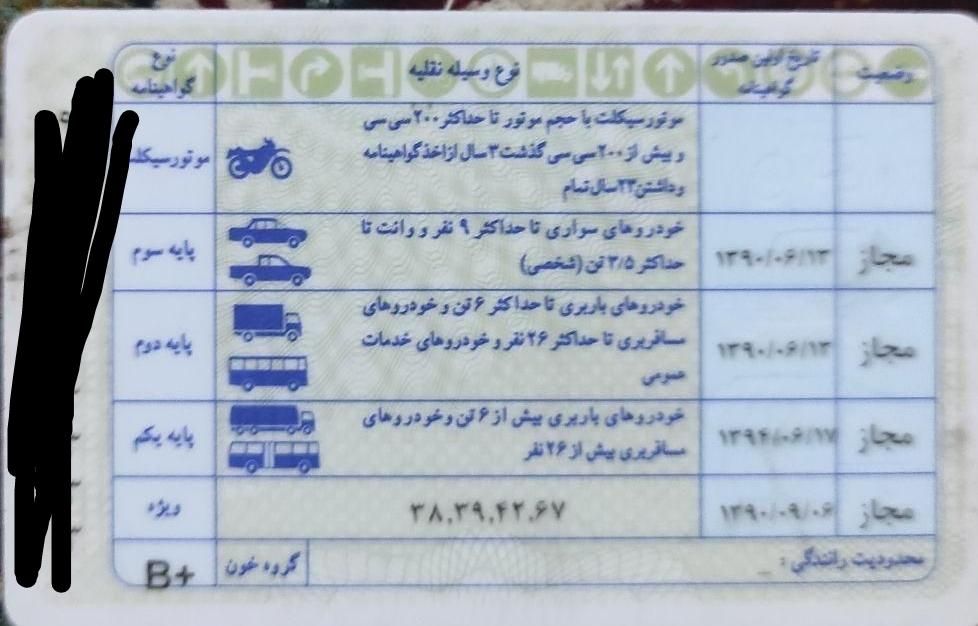 نوع گواهینامه
نوع وسیله نقلیه
تاریخ اولین صدور گواهینامه
وضعیت
موتورسیکلت
موتورسیکلت با حجم موتور تا حداکثر ۲۰۰ سی سی
و بیش از ۲۰۰ سی سی گذشت ۳ سال از اخذ گواهینامه
و داشتن ۲۳ سال تمام
پایه سوم
خودروهای سواری تا حداکثر ۹ نفر و وانت تا
حداکثر ۳/۵ تن (شخصی)
۱۳۹۰/۰۶/۱۳
مجاز
پایه دوم
خودروهای باربری تا حداکثر ۶ تن و خودروهای
مسافربری تا حداکثر ۲۶ نفر و خودروهای خدمات
عمومی
۱۳۹۰/۰۶/۱۳
مجاز
پایه یکم
خودروهای باربری بیش از ۶ تن و خودروهای
مسافربری بیش از ۲۶ نفر
۱۳۹۴/۰۶/۱۷
مجاز
ویژه
۳۸,۳۹,۴۲,۶۷
۱۳۹۰/۰۹/۰۶
مجاز
B+
گروه خون
محدودیت رانندگی :